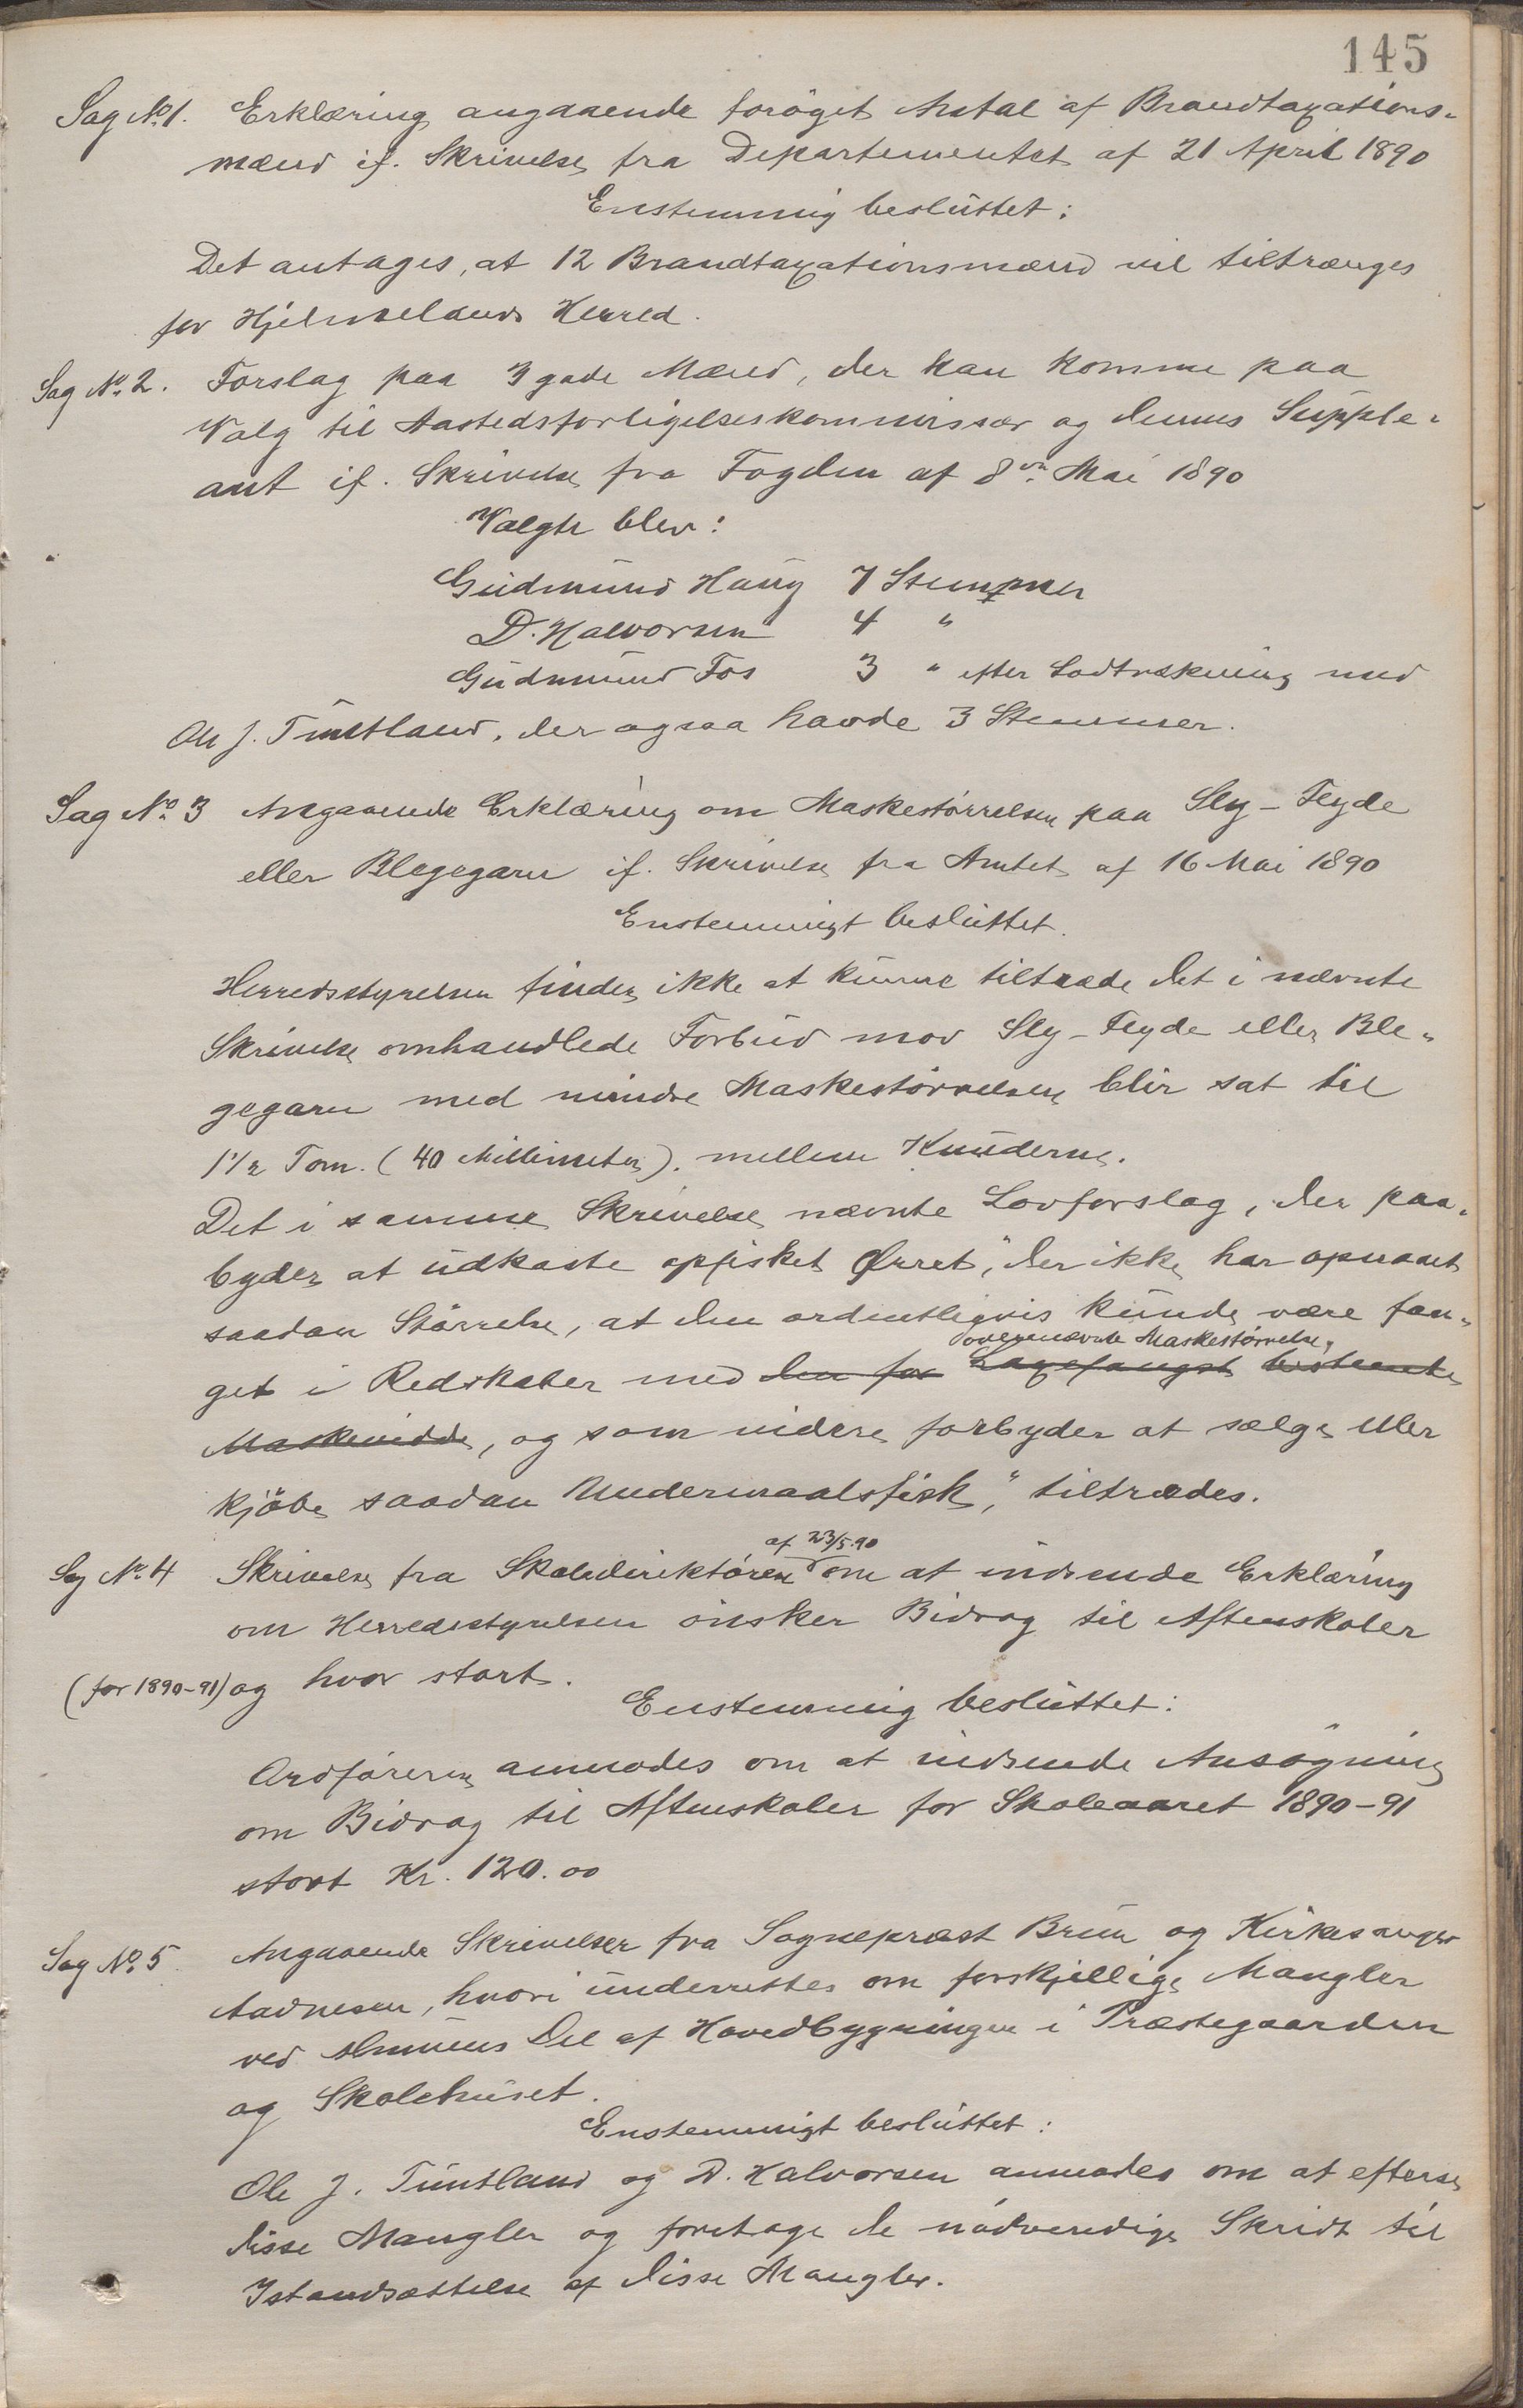 145
Sag No. 1. Erklæring angaaende forøget Antal af Brandtaxations-
mænd if. Skrivelse fra Departementet af 21 April 1890
Enstemmig besluttet:
Det antages, at 12 Brandtaxationsmænd vil tiltrænges
for Hjelmelands Herred.
Sag No. 2. Forslag paa 3 gode Mænd, der kan komme paa
Valg til Aastedsforligelseskommissær og dennes Supple-
ant if. Skrivelse fra Fogden af 8de Mai 1890
Valgte blev:
Gudmund Haug 7 Stemmer
D. Halvorsen 4 "
Gudmund Fos 3 " efter Lodtrækning med
Ole J. Tuntland, der ogsaa havde 3 Stemmer.
Sag No. 3 Angaaende Erklæring om Maskestørrelsen paa Sly-Flyde
eller Blegegarn if. Skrivelse fra Amtet af 16 Mai 1890
Enstemmigt besluttet.
Herredsstyrelsen finder ikke at kunne tiltræde det i nævnte
Skrivelse omhandlede Forbud mod Sly-Flyde eller Ble-
gegarn med mindre Maskestørrelsen blir sat til
1 1/2 Tom. (40 Millimeter). mellem Knuderne.
Det i samme Skrivelse nævnte Lovforslag, der paa-
byder at udkaste opfisket Ørret, "der ikke har opnaaet
saadan Størrelse, at den ordentligvis kunde være fan-
ovennævnte Maskestørrelse,
get i Redskaber med den for Laxefangst bestemte
Maskevidde, og som videre forbyder at sælge eller
kjøbe saadan Undermaalsfisk," tiltrædes.
af 23/5.90
Sag No. 4 Skrivelse fra Skoledirektøren om at indsende Erklæring
om Herredsstyrelsen ønsker Bidrag til Aftenskoler
(for 1890-91) og hvor stort.
Enstemmig besluttet:
Ordføreren anmodes om at indsende Ansøgning
om Bidrag til Aftenskoler for Skoleaaret 1890-91
stort Kr. 120.00
Sag No. 5 Angaaende Skrivelser fra Sogneprest Bruun og Kirkesanger
Aadnesen, hvori underrettes om forskjellige Mangler
ved Almuens Del af Hovedbygningen i Præstegaarden
og Skolehuset.
Enstemmigt besluttet:
Ole J. Tuntland og D. Halvorsen anmodes om at efterse
disse Mangler og foretage de nødvendige Skridt til
Istandsættelse af disse Mangler.